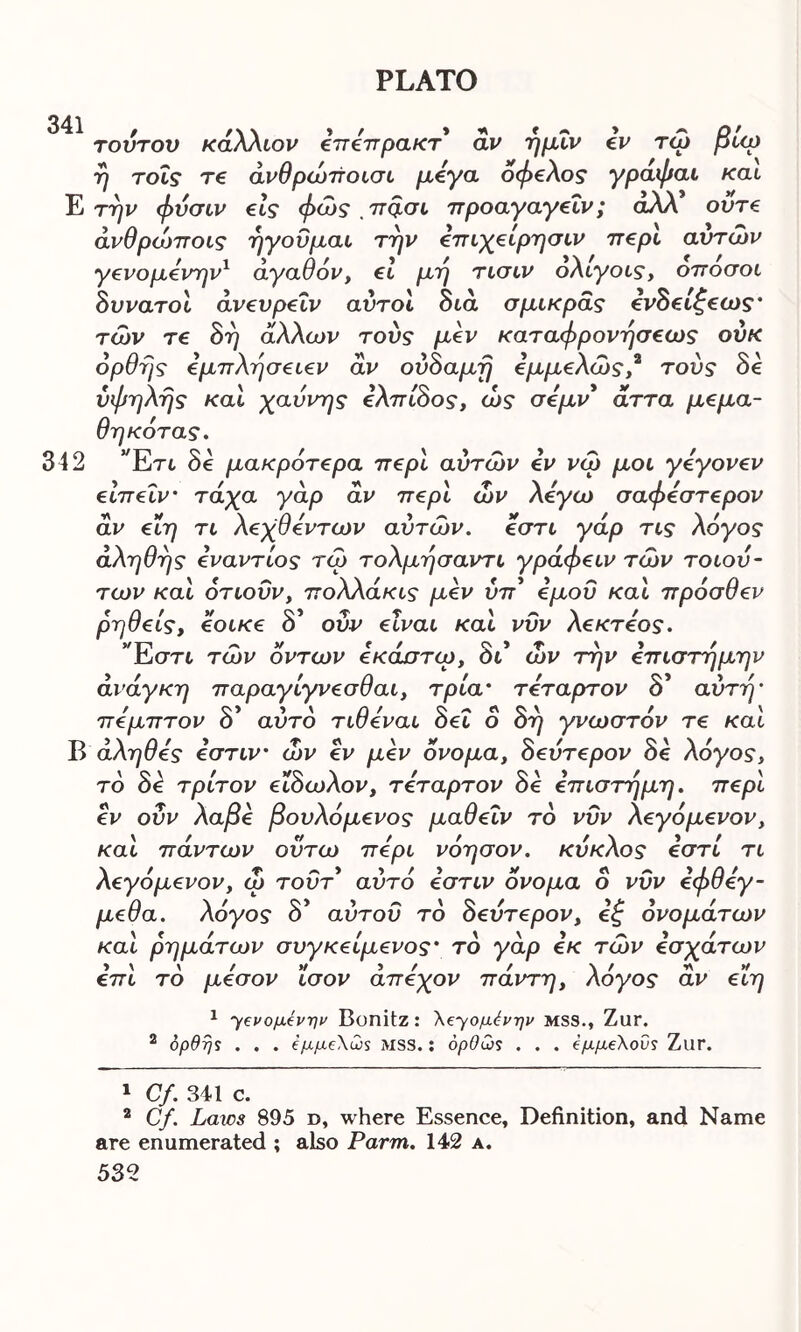 PLATO
341 τούτου κάλλιον ἐπέπρακτ᾽ ἂν ἡμῖν ἐν τῷ βίῳ
ἢ τοῖς τε ἀνθρώποισι μέγα ὄφελος γράψαι καὶ
E τὴν φύσιν εἰς φῶς πᾶσι προαγαγεῖν; ἀλλ᾽ οὔτε
ἀνθρώποις ἡγοῦμαι τὴν ἐπιχείρησιν περὶ αὐτῶν
γενομένην¹ ἀγαθόν, εἰ μή τισιν ὀλίγοις, ὁπόσοι
δυνατοὶ ἀνευρεῖν αὐτοὶ διὰ σμικρᾶς ἐνδείξεως·
τῶν τε δὴ ἄλλων τοὺς μὲν καταφρονήσεως οὐκ
ὀρθῆς ἐμπλήσειεν ἂν οὐδαμῇ ἐμμελῶς,² τοὺς δὲ
ὑψηλῆς καὶ χαύνης ἐλπίδος, ὡς σέμν᾽ ἄττα μεμα-
θηκότας.
342 Ἔτι δὲ μακρότερα περὶ αὐτῶν ἐν νῷ μοι γέγονεν
εἰπεῖν· τάχα γὰρ ἂν περὶ ὧν λέγω σαφέστερον
ἂν εἴη τι λεχθέντων αὐτῶν. ἔστι γάρ τις λόγος
ἀληθὴς ἐναντίος τῷ τολμήσαντι γράφειν τῶν τοιού-
των καὶ ὁτιοῦν, πολλάκις μὲν ὑπ᾽ ἐμοῦ καὶ πρόσθεν
ῥηθείς, ἔοικε δ᾽ οὖν εἶναι καὶ νῦν λεκτέος.
Ἔστι τῶν ὄντων ἑκάστῳ, δι᾽ ὧν τὴν ἐπιστήμην
ἀνάγκη παραγίγνεσθαι, τρία· τέταρτον δ᾽ αὐτή·
πέμπτον δ᾽ αὐτὸ τιθέναι δεῖ ὃ δὴ γνωστόν τε καὶ
B ἀληθές ἐστιν· ὧν ἓν μὲν ὄνομα, δεύτερον δὲ λόγος,
τὸ δὲ τρίτον εἴδωλον, τέταρτον δὲ ἐπιστήμη. περὶ
ἓν οὖν λαβὲ βουλόμενος μαθεῖν τὸ νῦν λεγόμενον,
καὶ πάντων οὕτω πέρι νόησον. κύκλος ἐστί τι
λεγόμενον, ᾧ τοῦτ᾽ αὐτό ἐστιν ὄνομα ὃ νῦν ἐφθέγ-
μεθα. λόγος δ᾽ αὐτοῦ τὸ δεύτερον, ἐξ ὀνομάτων
καὶ ῥημάτων συγκείμενος· τὸ γὰρ ἐκ τῶν ἐσχάτων
ἐπὶ τὸ μέσον ἴσον ἀπέχον πάντη, λόγος ἂν εἴη
¹ γενομένην Bonitz: λεγομένην MSS., Zur.
² ὀρθῆς . . . ἐμμελῶς MSS.: ὀρθῶς . . . ἐμμελοῦς Zur.
¹ Cf. 341 C.
² Cf. Laws 895 D, where Essence, Definition, and Name
are enumerated ; also Parm. 142 A.
532